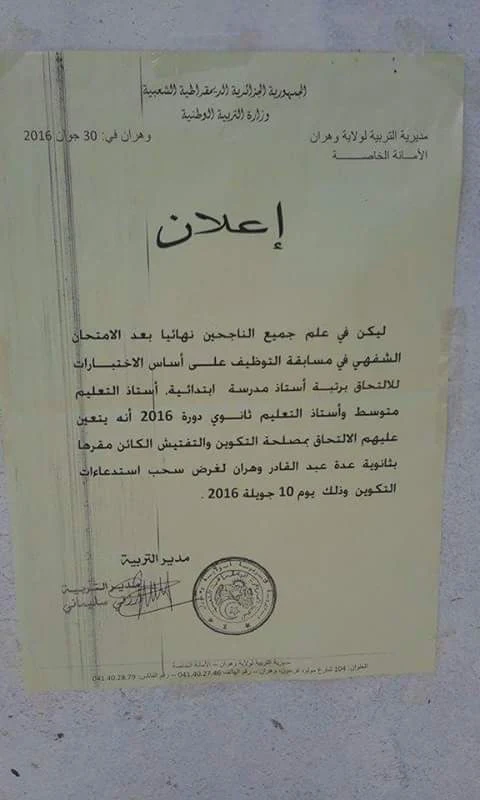 الجمهورية الجزائرية الديمقراطية الشعبية
وزارة التربية الوطنية
مديرية التربية لولاية وهران
وهران في: 30 جوان 2016
الأمانة الخاصـــــة
إعلان
ليكن في علم جميع الناجحين نهائيا بعد الامتحان
الشفهي في مسابقة التوظيف على أساس الاختبارات
للالتحاق برتبة أستاذ مدرسة ابتدائية، أستاذ التعليم
متوسط وأستاذ التعليم ثانوي دورة 2016 أنه يتعين
عليهم الالتحاق بمصلحة التكوين والتفتيش الكائن مقرها
بثانوية عدة عبد القادر وهران لغرض سحب استدعاءات
التكوين وذلك يوم 10 جويلة 2016 .
مدير التربية
مدير التربية
سليماني
مديرية التربية لولاية وهران – الأمانة الخاصة
العنوان: 104 شارع مولود فرعون، وهران – رقم الهاتف 041.40.27.46 – رقم الفاكس: 041.40.28.79